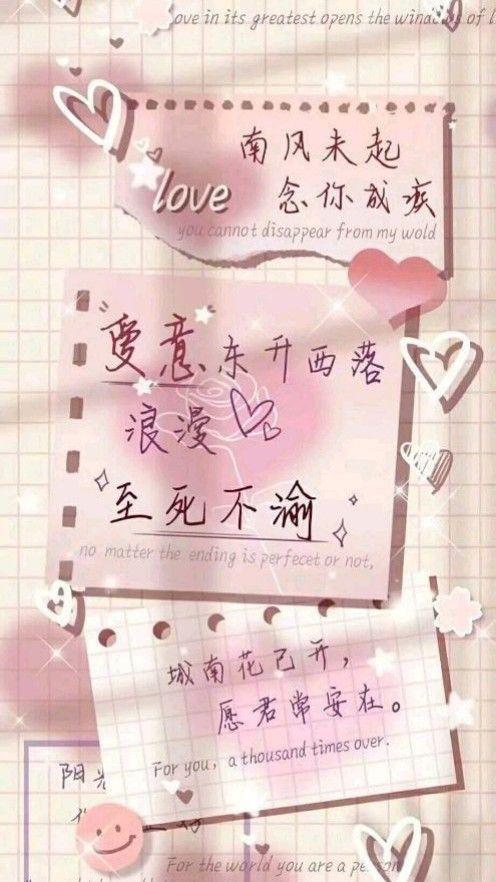 love in its greatest opens the windows of l
南风未起
love
念你成疾
you cannot disappear from my wold
爱意东升西落
浪漫
至死不渝
no matter the ending is perfecet or not,
城南花已开，
愿君常安在。
For you, a thousand times over.
阳光
For the world you are a pe